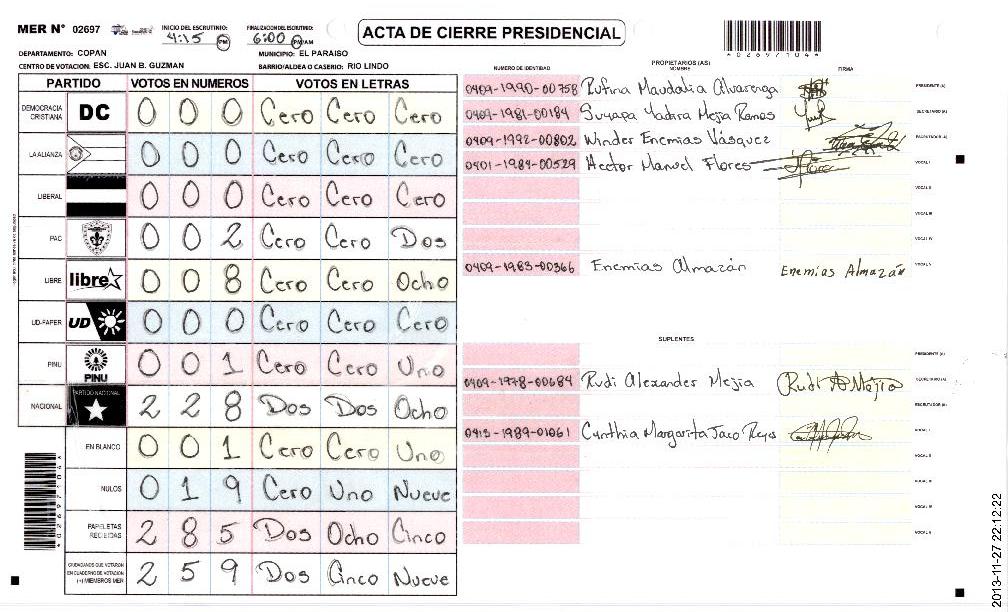 MER Nº 02697
INICIO DEL ESCRUTINIO: 4:15 PM
FINALIZACION DEL ESCRUTINIO: 6:00 PM/AM
ACTA DE CIERRE PRESIDENCIAL
*02697104*
DEPARTAMENTO: COPAN
MUNICIPIO: EL PARAISO
CENTRO DE VOTACION: ESC. JUAN B. GUZMAN
BARRIO/ALDEA O CASERIO: RIO LINDO
PARTIDO VOTOS EN NUMEROS VOTOS EN LETRAS
DEMOCRACIA CRISTIANA DC 0 0 0 Cero Cero Cero
LA ALIANZA 0 0 0 Cero Cero Cero
LIBERAL 0 0 0 Cero Cero Cero
PAC 0 0 2 Cero Cero Dos
LIBRE libre 0 0 8 Cero Cero Ocho
UD-FAPER UD 0 0 0 Cero Cero Cero
PINU PINU 0 0 1 Cero Cero Uno
NACIONAL PARTIDO NACIONAL 2 2 8 Dos Dos Ocho
EN BLANCO 0 0 1 Cero Cero Uno
NULOS 0 1 9 Cero Uno Nueve
PAPELETAS RECIBIDAS 2 8 5 Dos Ocho Cinco
CIUDADANOS QUE VOTARON EN CUADERNO DE VOTACION (+) MIEMBROS MER 2 5 9 Dos Cinco Nueve
*02697104*
PROPIETARIOS (AS)
NUMERO DE IDENTIDAD NOMBRE FIRMA
0409-1990-00758 Rufina Maudalia Alvarenga PRESIDENTE (A)
0409-1981-00184 Suyapa Yadira Mejia Ramos SECRETARIO (A)
0409-1992-00802 Winder Enemias Vásquez ESCRUTADOR (A)
0401-1984-00529 Hector Manuel Flores VOCAL I
VOCAL II
VOCAL III
VOCAL IV
0409-1983-00366 Enemias Almazán Enemias Almazán VOCAL V
SUPLENTES
PRESIDENTE (A)
0409-1978-00684 Rudi Alexander Mejia Rudi A Mejia SECRETARIO (A)
ESCRUTADOR (A)
0413-1989-01061 Cynthia Margarita Jaco Reyes VOCAL I
VOCAL II
VOCAL III
VOCAL IV
VOCAL V
2013-11-27 22:12:22